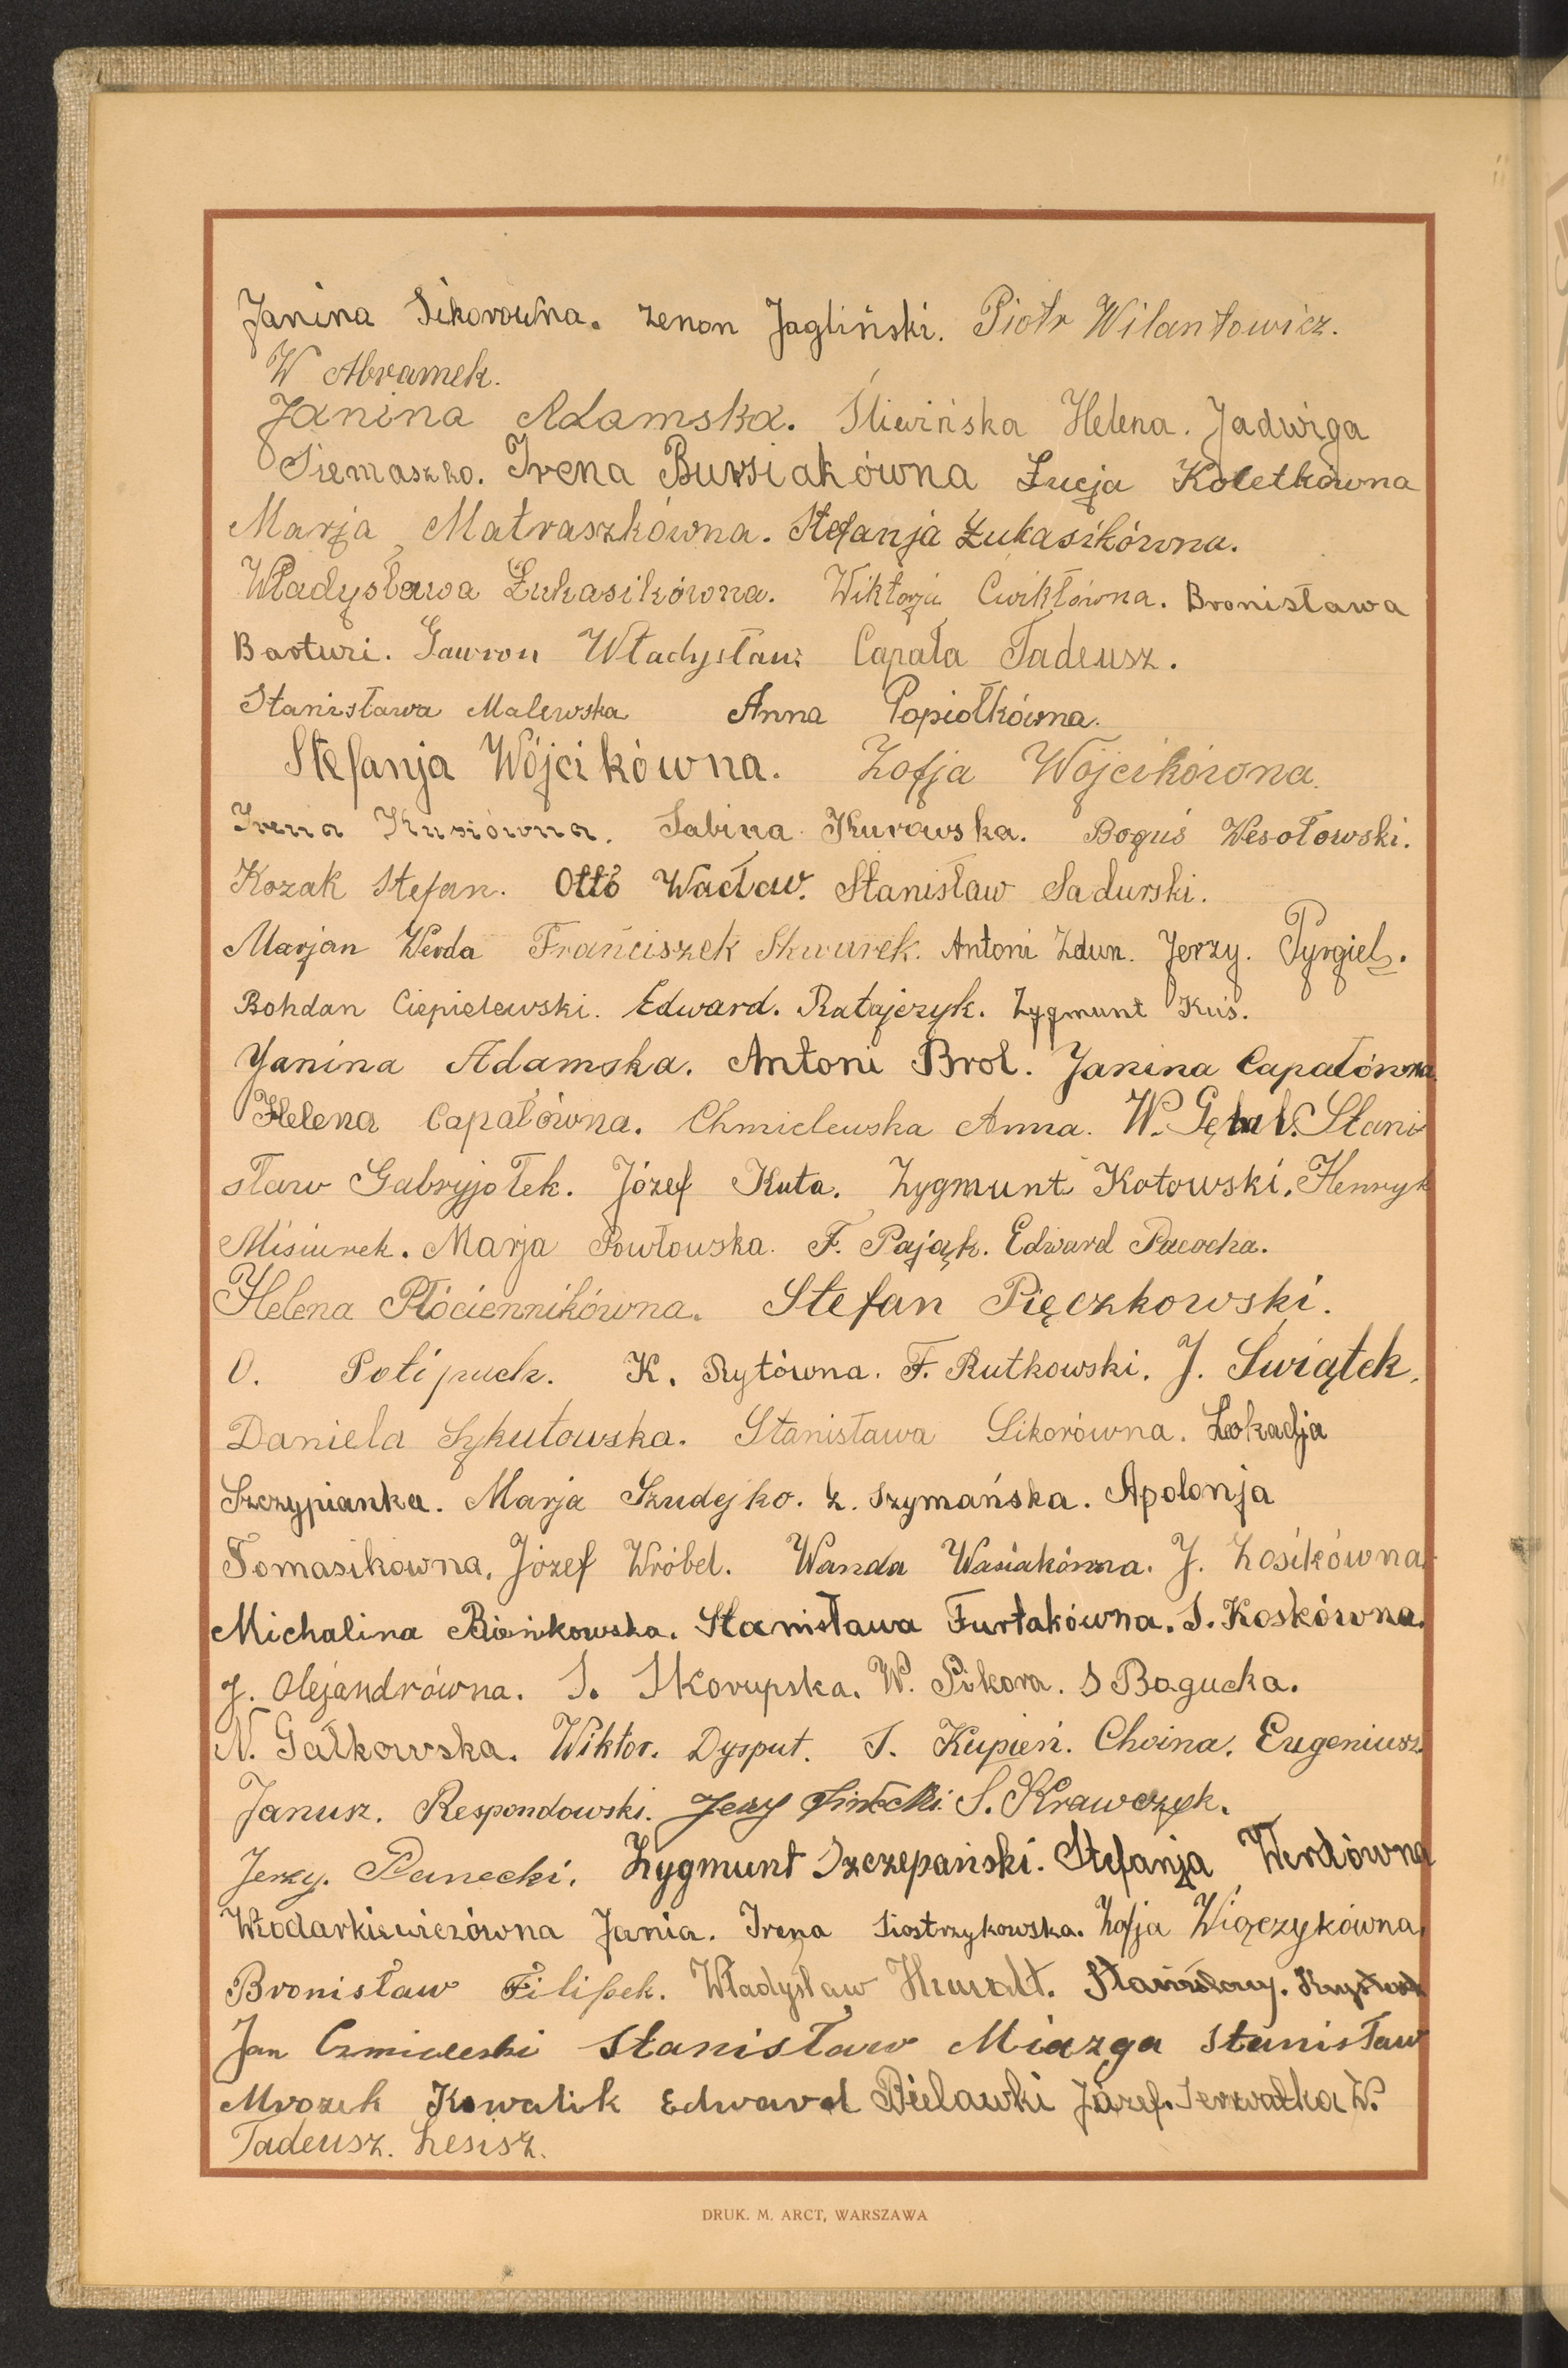 Janina Sikorowna. Zenon Jagliński. Piotr Wilantowicz.
W Abramek.
Janina Adamska. Śliwińska Helena. Jadwiga
Siemaszko. Irena Bursiakówna Łucja Koletkówna
Marja Matraszkówna. Stefanja Łukasikówna.
Władysława Łukasikówna. Wiktorja Ćwikłówna. Bronisława
Barturi. Gawron Władysław Capała Tadeusz.
Stanisława Malewska Anna Popiołkówna.
Stefanja Wójcikówna. Zofja Wójcikówna.
Irena Kusiówna. Sabina Kurowska. Boguś Wesołowski.
Kozak Stefan. Otto Wacław. Stanisław Sadurski.
Marjan Werda Franciszek Skwurek. Antoni Zdun. Jerzy. Pyrgiel.
Bohdan Ciepielewski. Edward. Ratajczyk. Zygmunt Kuś.
Janina Adamska. Antoni Brol. Janina Capałówna
Helena Capałówna. Chmielewska Anna. W. Gębal. Stani
sław Gabryjołek. Józef Kuta. Zygmunt Kotowski. Henryk
Misiurek. Marja Powłowska. F. Pająk. Edward Pacocha.
Helena Płóciennikówna. Stefan Pięczkowski.
O. Polipuch. K. Rytówna. F. Rutkowski. J. Świątek.
Daniela Sykutowska. Stanisława Sikorówna. Lokadja
Szczypianka. Marja Szudejko. Z. Szymańska. Apolonja
Tomasikowna. Józef Wróbel. Wanda Wasiakówna. J. Zosikówna.
Michalina Bieńkowska. Stanisława Furtakówna. S. Koskówna.
J. Olejandrówna. S. Skorupska. W. Sikora. S Bogucka.
N. Gałkowska. Wiktor. Dysput. S. Kupień. Choina. Eugeniusz.
Janusz. Respondowski. Jerzy S. Krawczyk.
Jerzy. Panecki. Zygmunt Szczepański. Stefanja Werdówna
Włodarkiewiczówna Jania. Irena Siostrzykowska. Zofja Wiączykówna.
Bronisław Filipek. Władysław Huwalt.
Jan Stanisław Miazga Stanisław
Mrozek Kowalik Edward Bielawki Józef. Serwatka W.
Tadeusz. Lesisz.
DRUK. M. ARCT, WARSZAWA